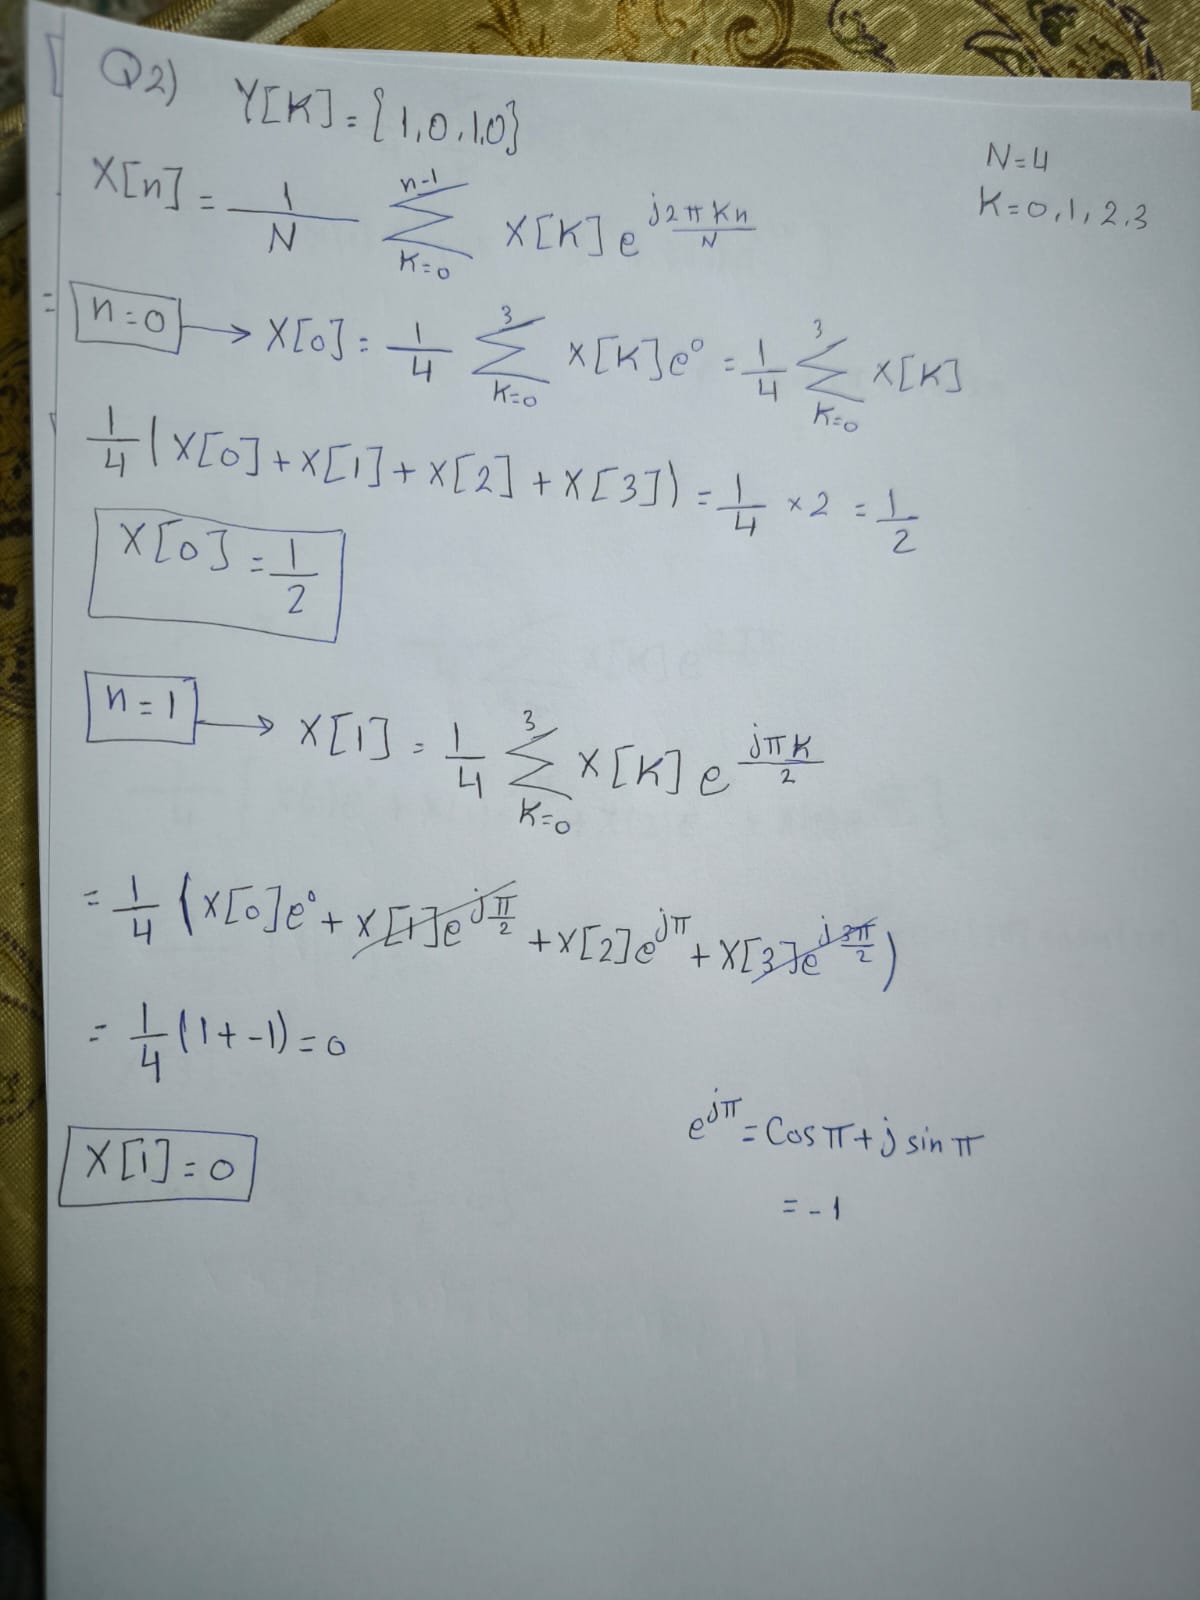 Q2) Y[K] = {1,0,1,0}
N=4
K=0,1,2,3
X[n] = 1/N Σ_{K=0}^{n-1} X[K] e^{j2πKn/N}
= n=0 → X[0] = 1/4 Σ_{K=0}^{3} X[K]e^0 = 1/4 Σ_{K=0}^{3} X[K]
1/4 (X[0]+X[1]+X[2]+X[3]) = 1/4 × 2 = 1/2
X[0] = 1/2
n=1 → X[1] = 1/4 Σ_{K=0}^{3} X[K] e^{jπK/2}
= 1/4 (X[0]e^0 + X[1]e^{jπ/2} + X[2]e^{jπ} + X[3]e^{j3π/2})
= 1/4 (1+-1) = 0
e^{jπ} = Cos π + j sin π
= -1
X[1] = 0